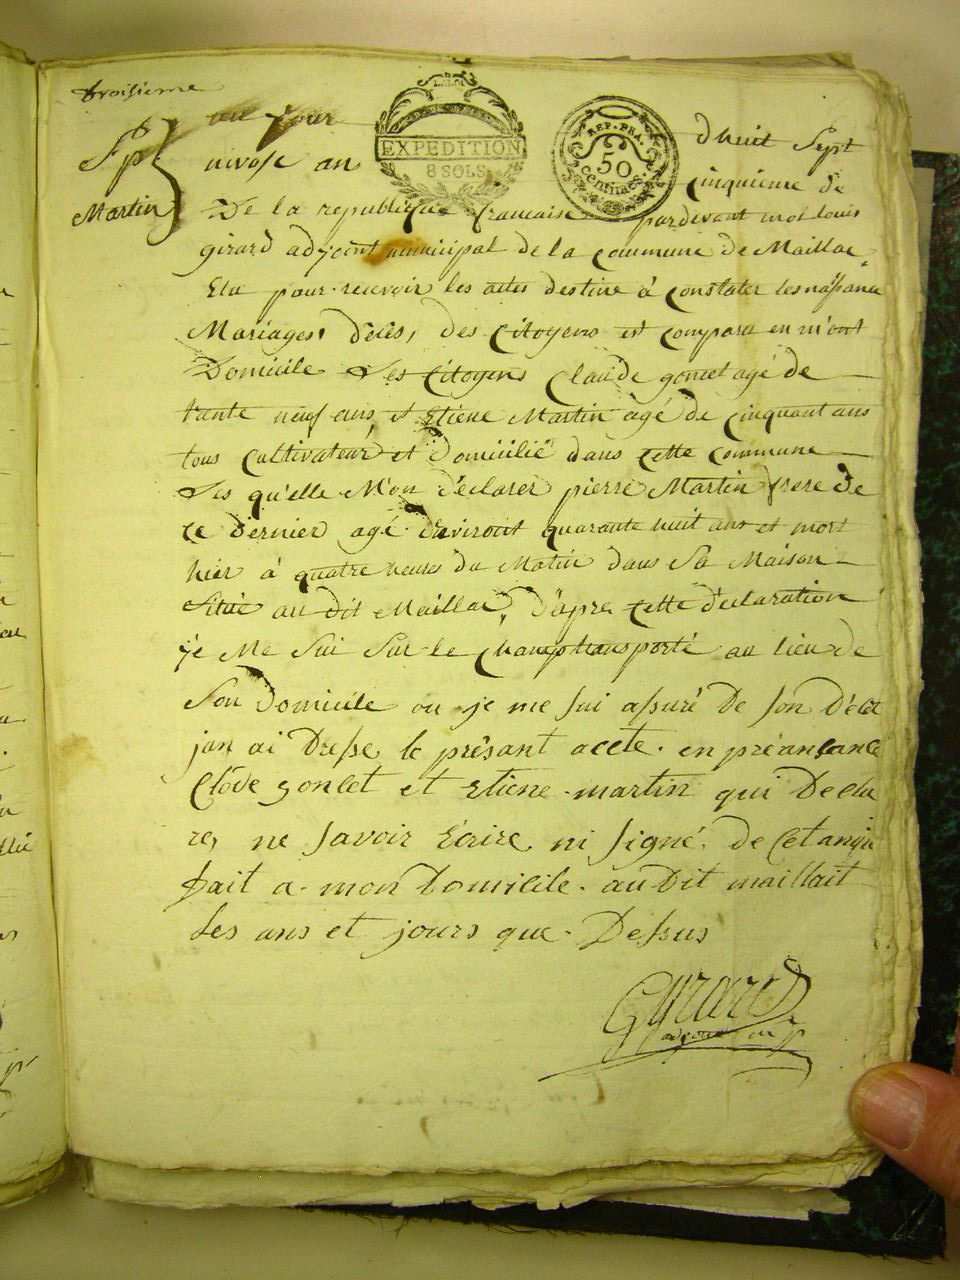 troisieme
au jour dhuit Sept
nivose an cinquieme de
Martin
EXPEDITION
8 SOLS
REP. FRA.
50
centimes
De la republique francaise pardevant moi louis
girard adjoint municipal de la commune de Maillac
Elu pour recevoir les actes destiné à constater les naissance
Mariages, décès, des Citoyens est compara en m'ont
Domicile Les Citoyens Claude goncet agé de
tante neuf ans, et Etiene Martin agé de cinquant ans
tous Cultivateur et domicilié dans cette commune
Les qu'elle M'on déclarer pierre Martin frere de
ce dernier agé daviront quarante huit ans et mort
hier à quatre heures du Matin dans Sa Maison
Situé au dit Maillac, d'apre cette déclaration
je Me Sui Sur le Champ transporté au lieu de
Son domicile ou je me sui assuré De son Décet
jan ai Dresse le présant acete. en préançance
Clôde goncet et Etiene martin qui Decla
re, ne savoir écrire ni signé. de Cet anqui
fait a mon Domicile. au Dit maillait
Les ans et jours que Dessus
Girard
adjoint